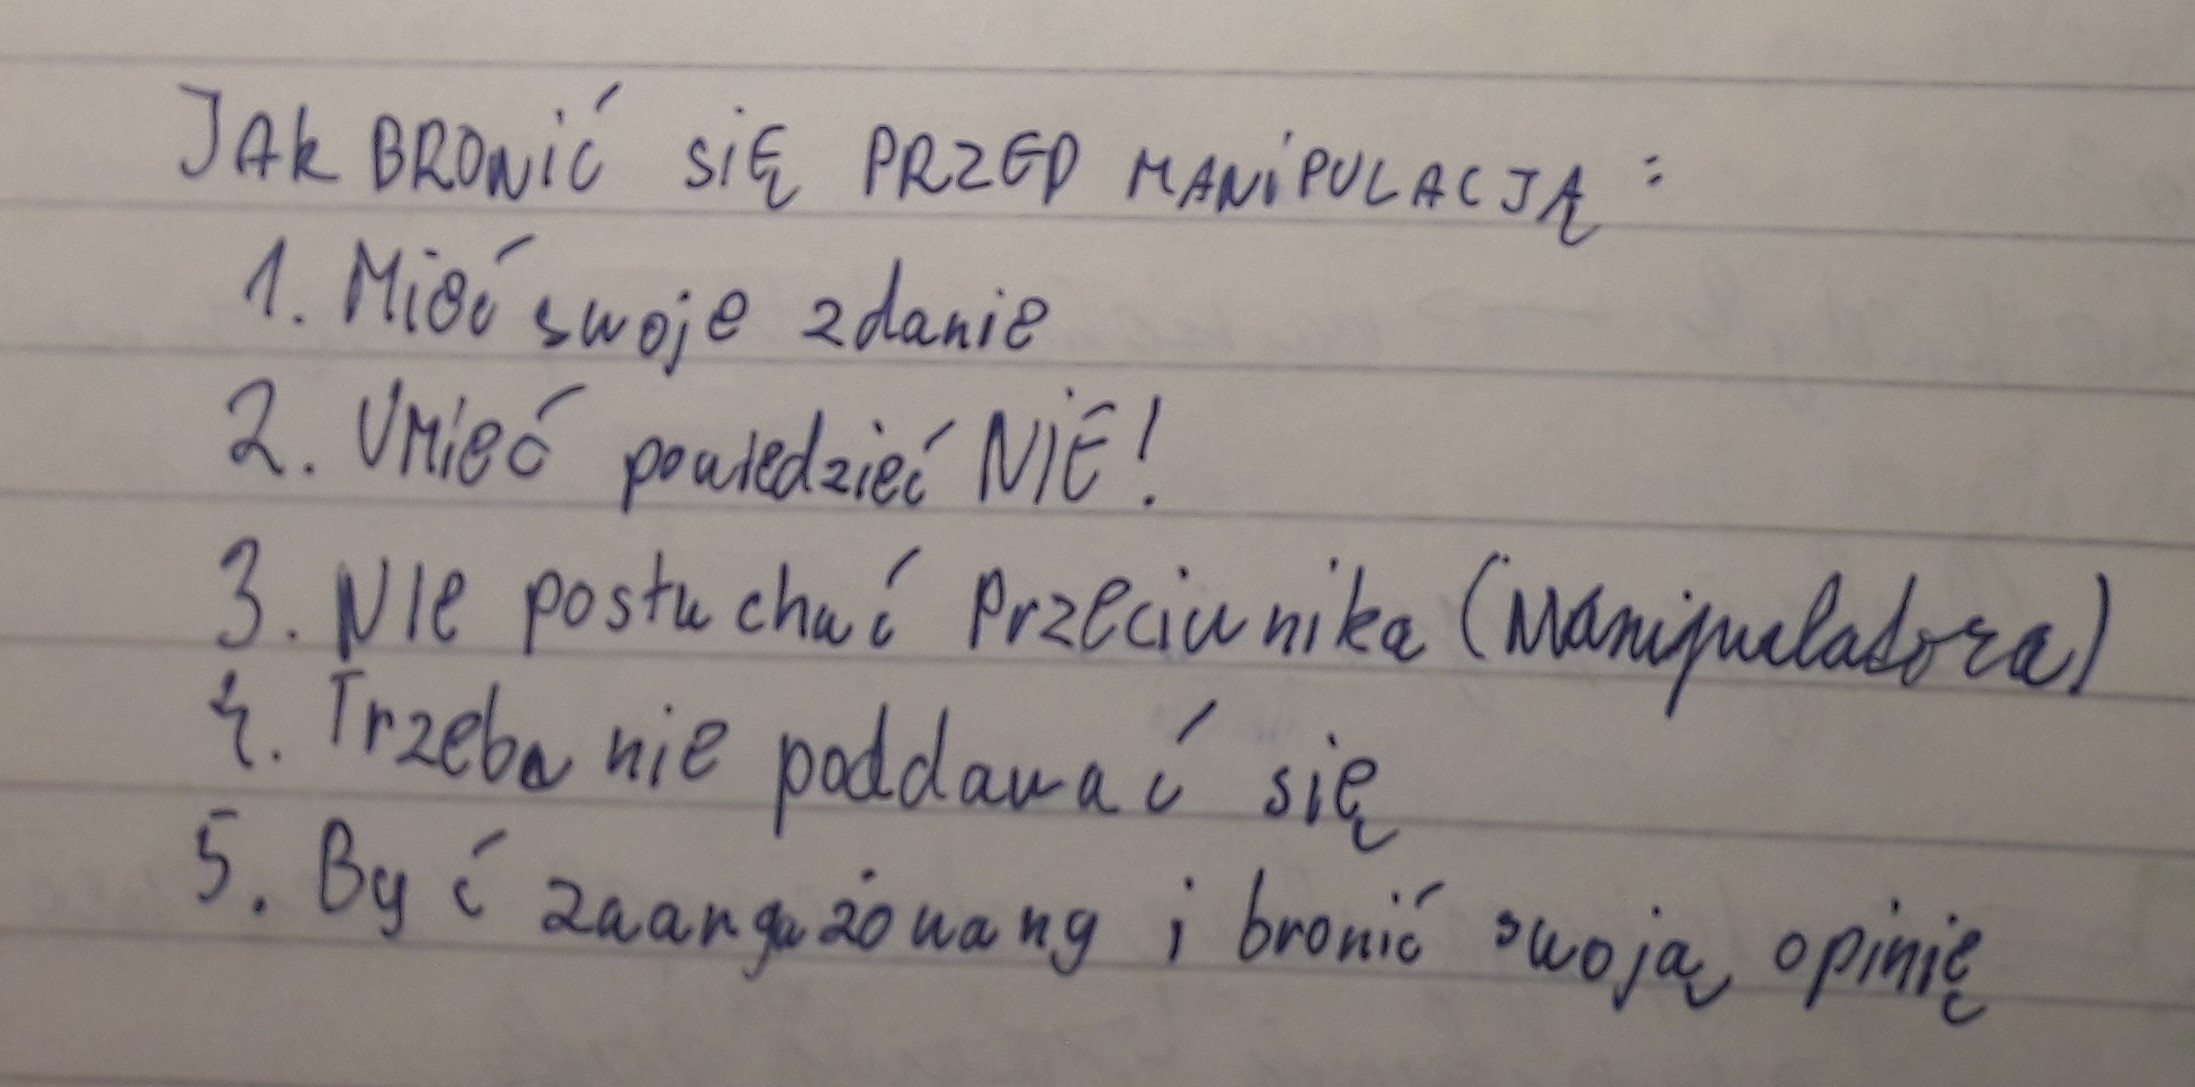 JAK BRONIĆ SIĘ PRZED MANIPULACJĄ:
1. Mieć swoje zdanie
2. Umieć powiedzieć NIE!
3. NIE posłuchać Przeciwnika (Manipulatora)
4. Trzeba nie poddawać się
5. Być zaangażowany i bronić swoją opinię